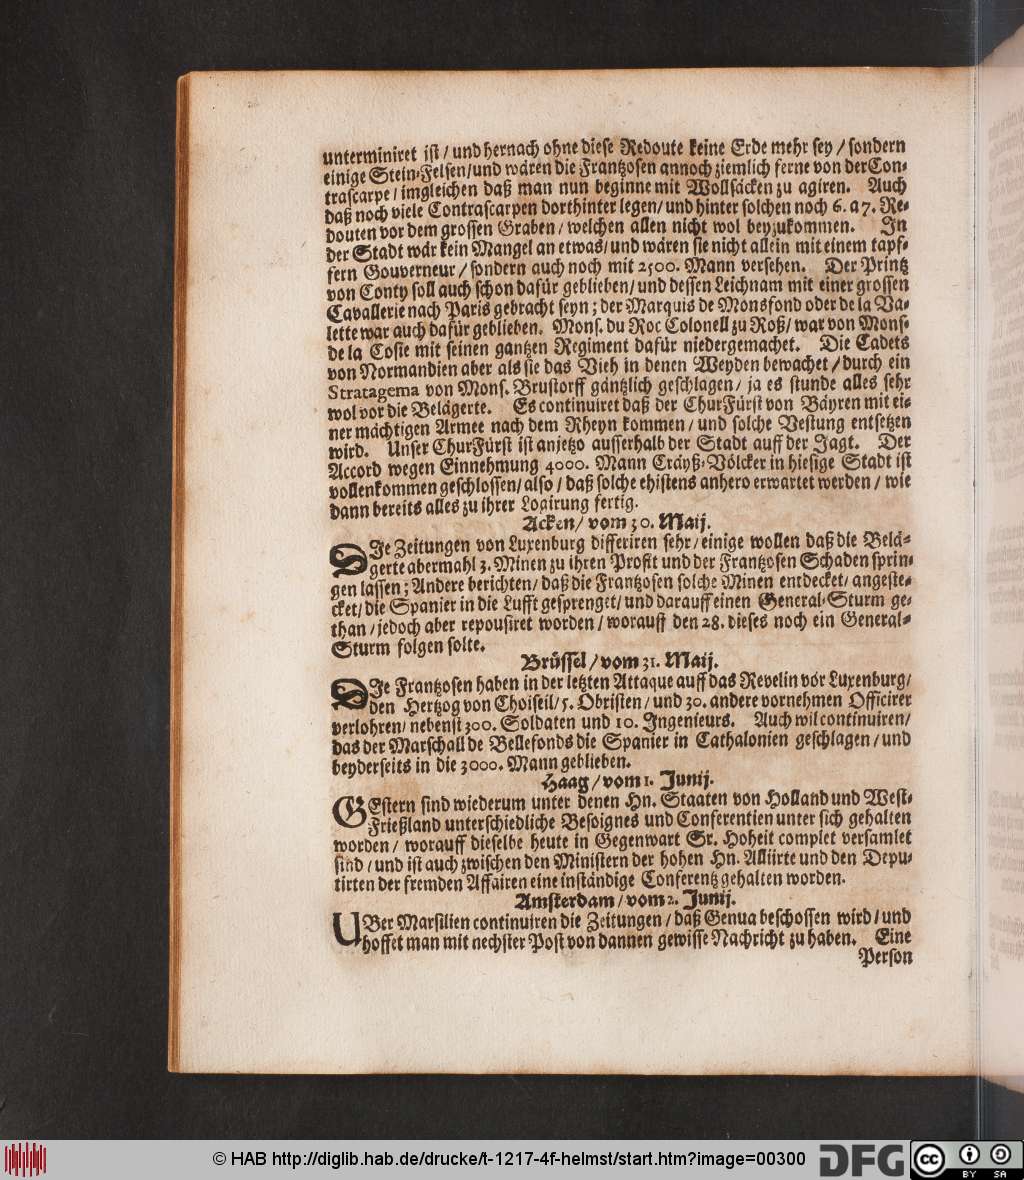 unterminiret ist / und hernach ohne diese Redoute keine Erde mehr sey / sondern
einige Stein-Felsen/und wären die Frantzosen annoch ziemlich ferne von der Con-
trascarpe / imgleichen daß man nun beginne mit Wollsäcken zu agiren. Auch
daß noch viele Contrascarpen dorthinter legen/ und hinter solchen noch 6. a 7. Re-
douten vor dem grossen Graben / welchen allen nicht wol beyzukommen. In
der Stadt wär kein Mangel an etwas/ und wären sie nicht allein mit einem tapf-
fern Gouverneur / sondern auch noch mit 2500. Mann versehen. Der Printz
von Conty soll auch schon dafür geblieben/ und dessen Leichnam mit einer grossen
Cavallerie nach Paris gebracht seyn; der Marquis de Monsfond oder de la Va-
lette war auch dafür geblieben. Mons. du Roc Colonell zu Roß/ war von Mons-
de la Cosie mit seinen gantzen Regiment dafür niedergemachet. Die Cadets
von Normandien aber als sie das Vieh in denen Weyden bewachet / durch ein
Stratagema von Mons. Brustorff gäntzlich geschlagen/ ja es stunde alles sehr
wol vor die Belägerte. Es continuiret daß der ChurFürst von Bäyren mit ei-
ner mächtigen Armee nach dem Rheyn kommen / und solche Vestung entsetzen
wird. Unser ChurFürst ist anjetzo ausserhalb der Stadt auff der Jagt. Der
Accord wegen Einnehmung 4000. Mann Cräyß-Völcker in hiesige Stadt ist
vollenkommen geschlossen/ also / daß solche ehistens anhero erwartet werden / wie
dann bereits alles zu ihrer Logirung fertig.
Acken/ vom 30. Maij.
DIe Zeitungen von Luxenburg differiren sehr/ einige wollen daß die Belä-
gerte abermahl 3. Minen zu ihren Profit und der Frantzosen Schaden sprin-
gen lassen; Andere berichten/ daß die Frantzosen solche Minen entdecket/ angeste-
cket/ die Spanier in die Lufft gesprenget/ und darauff einen General-Sturm ge-
than / jedoch aber repousiret worden / worauff den 28. dieses noch ein General-
Sturm folgen solte.
Brüssel / vom 31. Maij.
DIe Frantzosen haben in der letzten Attaque auff das Revelin vor Luxenburg/
den Hertzog von Choiseil/ 5. Obristen / und 30. andere vornehmen Officirer
verlohren/ nebenst 300. Soldaten und 10. Ingenieurs. Auch wil continuiren/
das der Marschall de Bellefonds die Spanier in Cathalonien geschlagen / und
beyderseits in die 3000. Mann geblieben.
Haag / vom 1. Junij.
GEstern sind wiederum unter denen Hn. Staaten von Holland und West-
Frießland unterschiedliche Besoignes und Conferentien unter sich gehalten
worden / worauff dieselbe heute in Gegenwart Sr. Hoheit complet versamlet
sind / und ist auch zwischen den Ministern der hohen Hn. Alliirte und den Depu-
tirten der fremden Affairen eine inständige Conferentz gehalten worden.
Amsterdam / vom 2. Junij.
UBer Marsilien continuiren die Zeitungen / daß Genua beschossen wird / und
hoffet man mit nechster Post von dannen gewisse Nachricht zu haben. Eine
Person
© HAB http://diglib.hab.de/drucke/t-1217-4f-helmst/start.htm?image=00300
DFG
CC BY SA